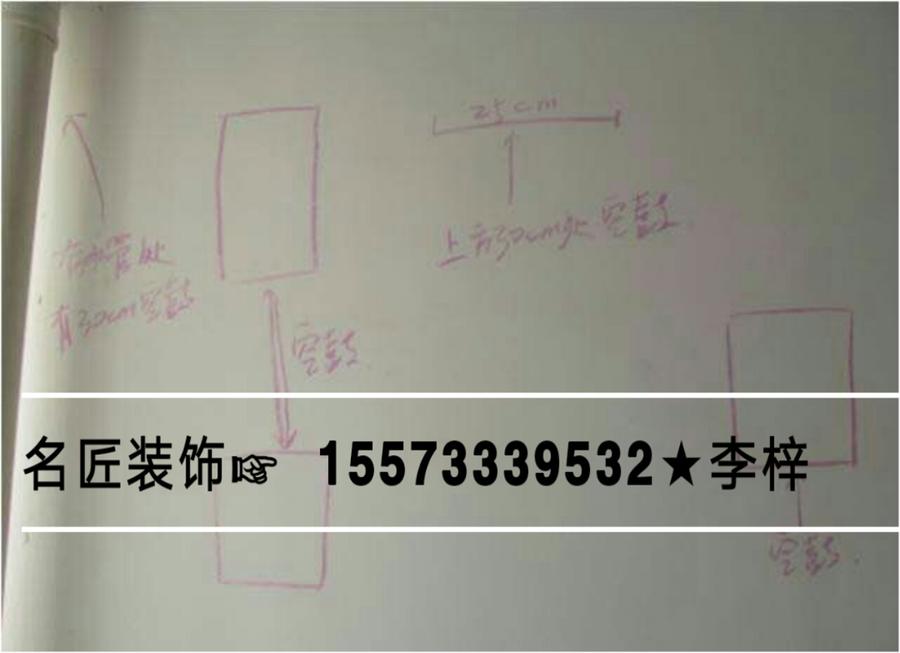 25cm
上方30cm处空鼓
有水管处
有30cm空鼓
空鼓.
名匠装饰☞ 15573339532★李梓
空鼓.